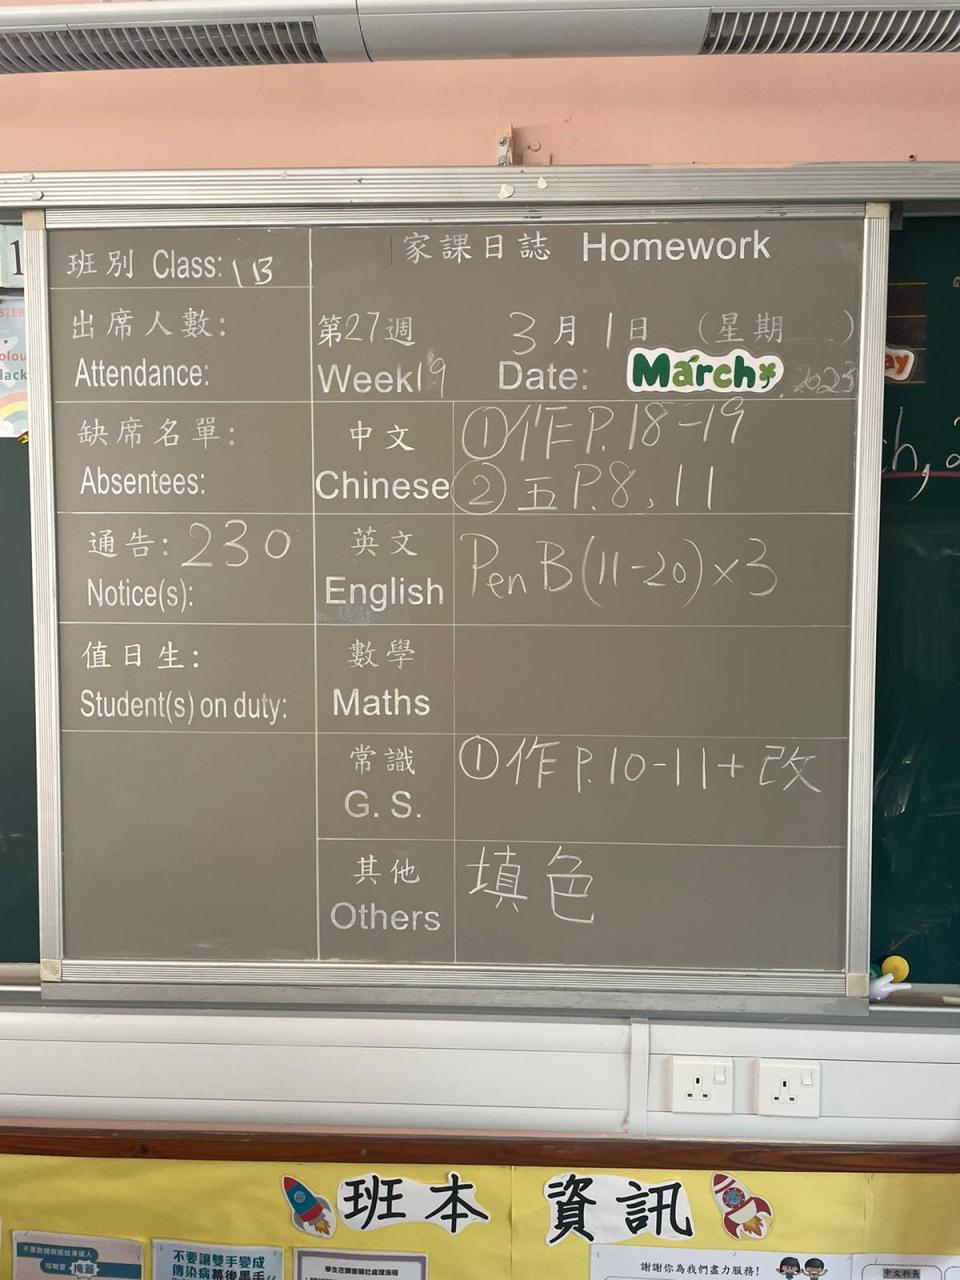 班別 Class: 1B
家課日誌 Homework
出席人數:
Attendance:
第27週 3月1日 (星期 )
Week19 Date: March 2023
缺席名單:
Absentees:
中文
Chinese
①作P.18-19
②五P.8, 11
通告: 230
Notice(s):
英文
English
Pen B(11-20)×3
值日生:
Student(s) on duty:
數學
Maths
常識
G. S.
①作P.10-11+改
其他
Others
填色
班本資訊
掩蓋
不要讓雙手變成
傳染病幕後黑手
謝謝你為我們盡力服務!
中文科長